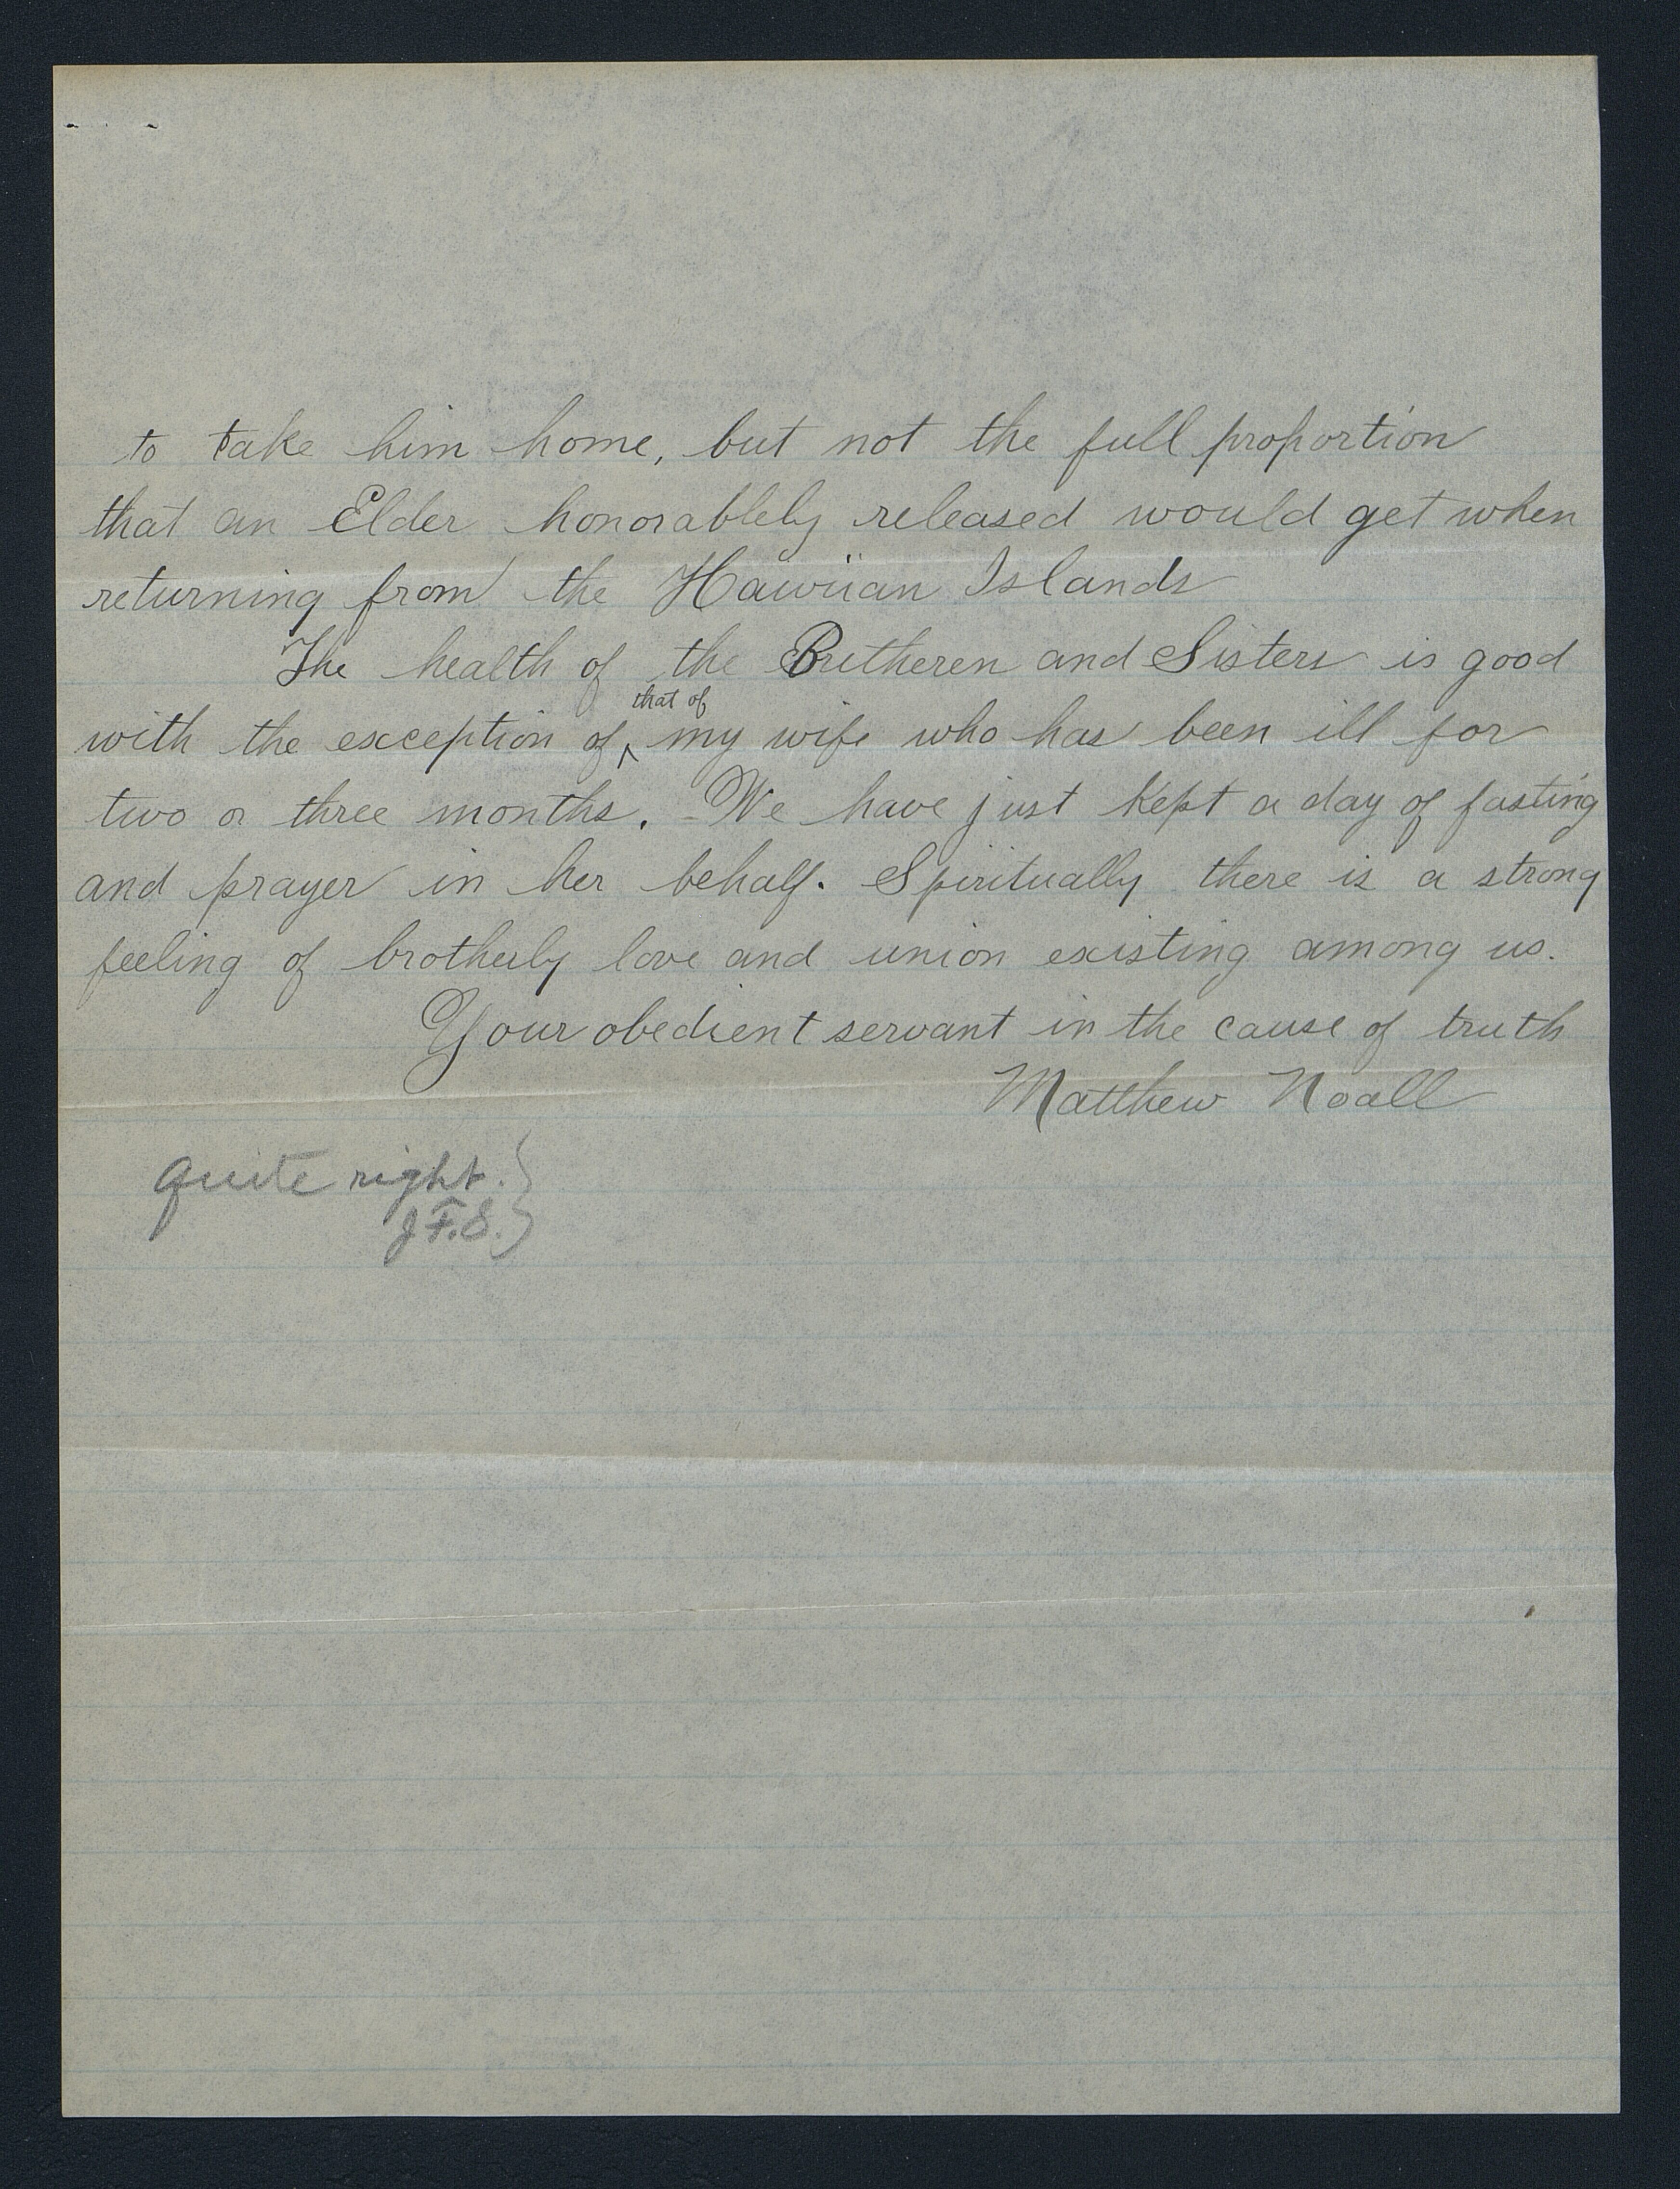 to take him home, but not the full proportion
that an Elder honorablely released would get when
returning from the Hawiian Islands
The health of the Bretheren and Sisters is good
that of
with the exception of ^ my wife who has been ill for
two or three months. We have just kept a day of fasting
and prayer in her behalf. Spiritually there is a strong
feeling of brotherly love and union existing among us.
Your obedient servant in the cause of truth
Matthew Noall
quite right. }
J.F.S. }